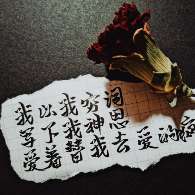 我以我穷词
了我神思
爱着替我去爱的